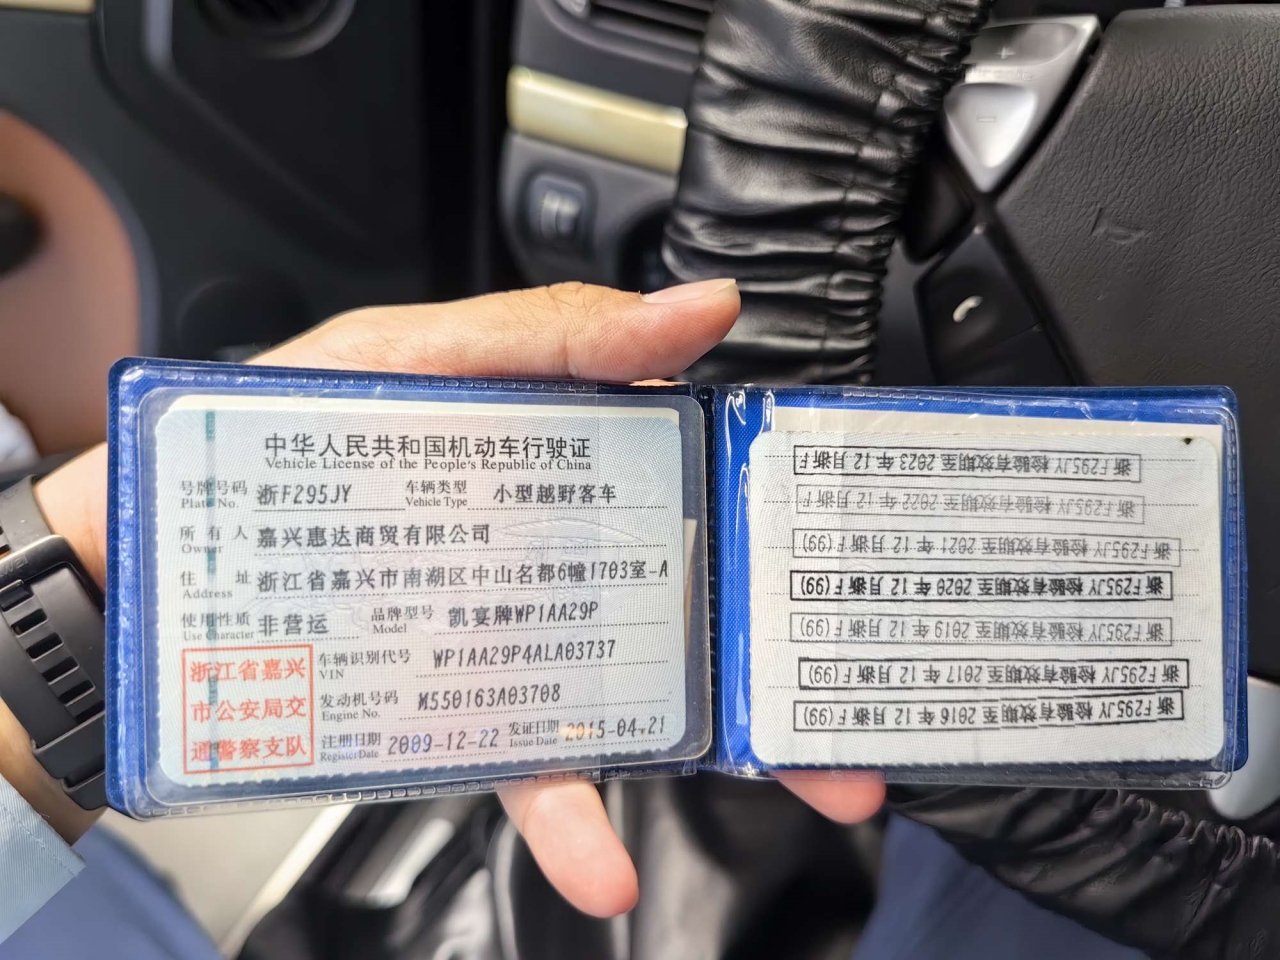 中华人民共和国机动车行驶证
Vehicle License of the People's Republic of China
号牌号码 浙F295JY 车辆类型 小型越野客车
Plate No. Vehicle Type
所有人 嘉兴惠达商贸有限公司
Owner
住址 浙江省嘉兴市南湖区中山名都6幢1703室-A
Address
使用性质 非营运 品牌型号 凯宴牌WP1AA29P
Use Character Model
浙江省嘉兴
市公安局交
通警察支队
车辆识别代号 WP1AA29P4ALA03737
VIN
发动机号码 M550163A03708
Engine No.
注册日期 2009-12-22 发证日期 2015-04-21
Register Date Issue Date
浙F295JY 检验有效期至 2016 年 12 月浙F(99)
浙F295JY 检验有效期至 2017 年 12 月浙F(99)
浙F295JY 检验有效期至 2019 年 12 月浙F(99)
浙F295JY 检验有效期至 2020 年 12 月浙F(99)
浙F295JY 检验有效期至 2021 年 12 月浙F(99)
浙F295JY 检验有效期至 2022 年 12 月浙F
浙F295JY 检验有效期至 2023 年 12 月浙F